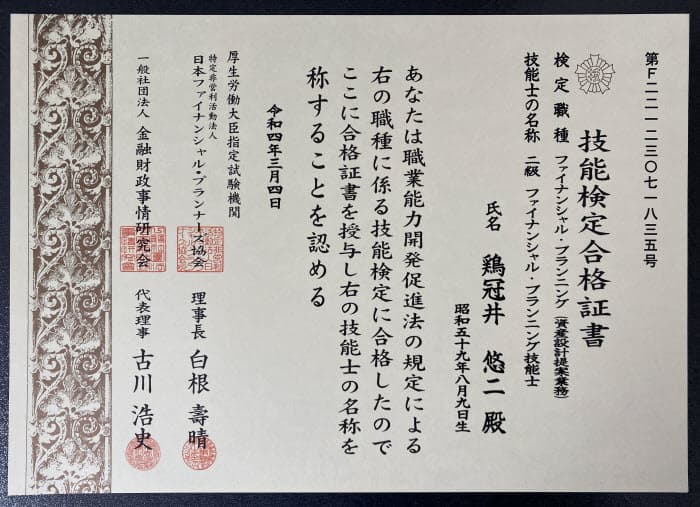 第F二二一二三〇七一八三五号
技能検定合格証書
検定職種 ファイナンシャル・プランニング(資産設計提案業務)
技能士の名称 二級 ファイナンシャル・プランニング技能士
氏名 鶏冠井 悠二 殿
昭和五十九年八月九日生
あなたは職業能力開発促進法の規定による
右の職種に係る技能検定に合格したので
ここに合格証書を授与し右の技能士の名称を
称することを認める
令和四年三月四日
厚生労働大臣指定試験機関
特定非営利活動法人
日本ファイナンシャル・プランナーズ協会 理事長 白根 壽晴
一般社団法人 金融財政事情研究会 代表理事 古川 浩史